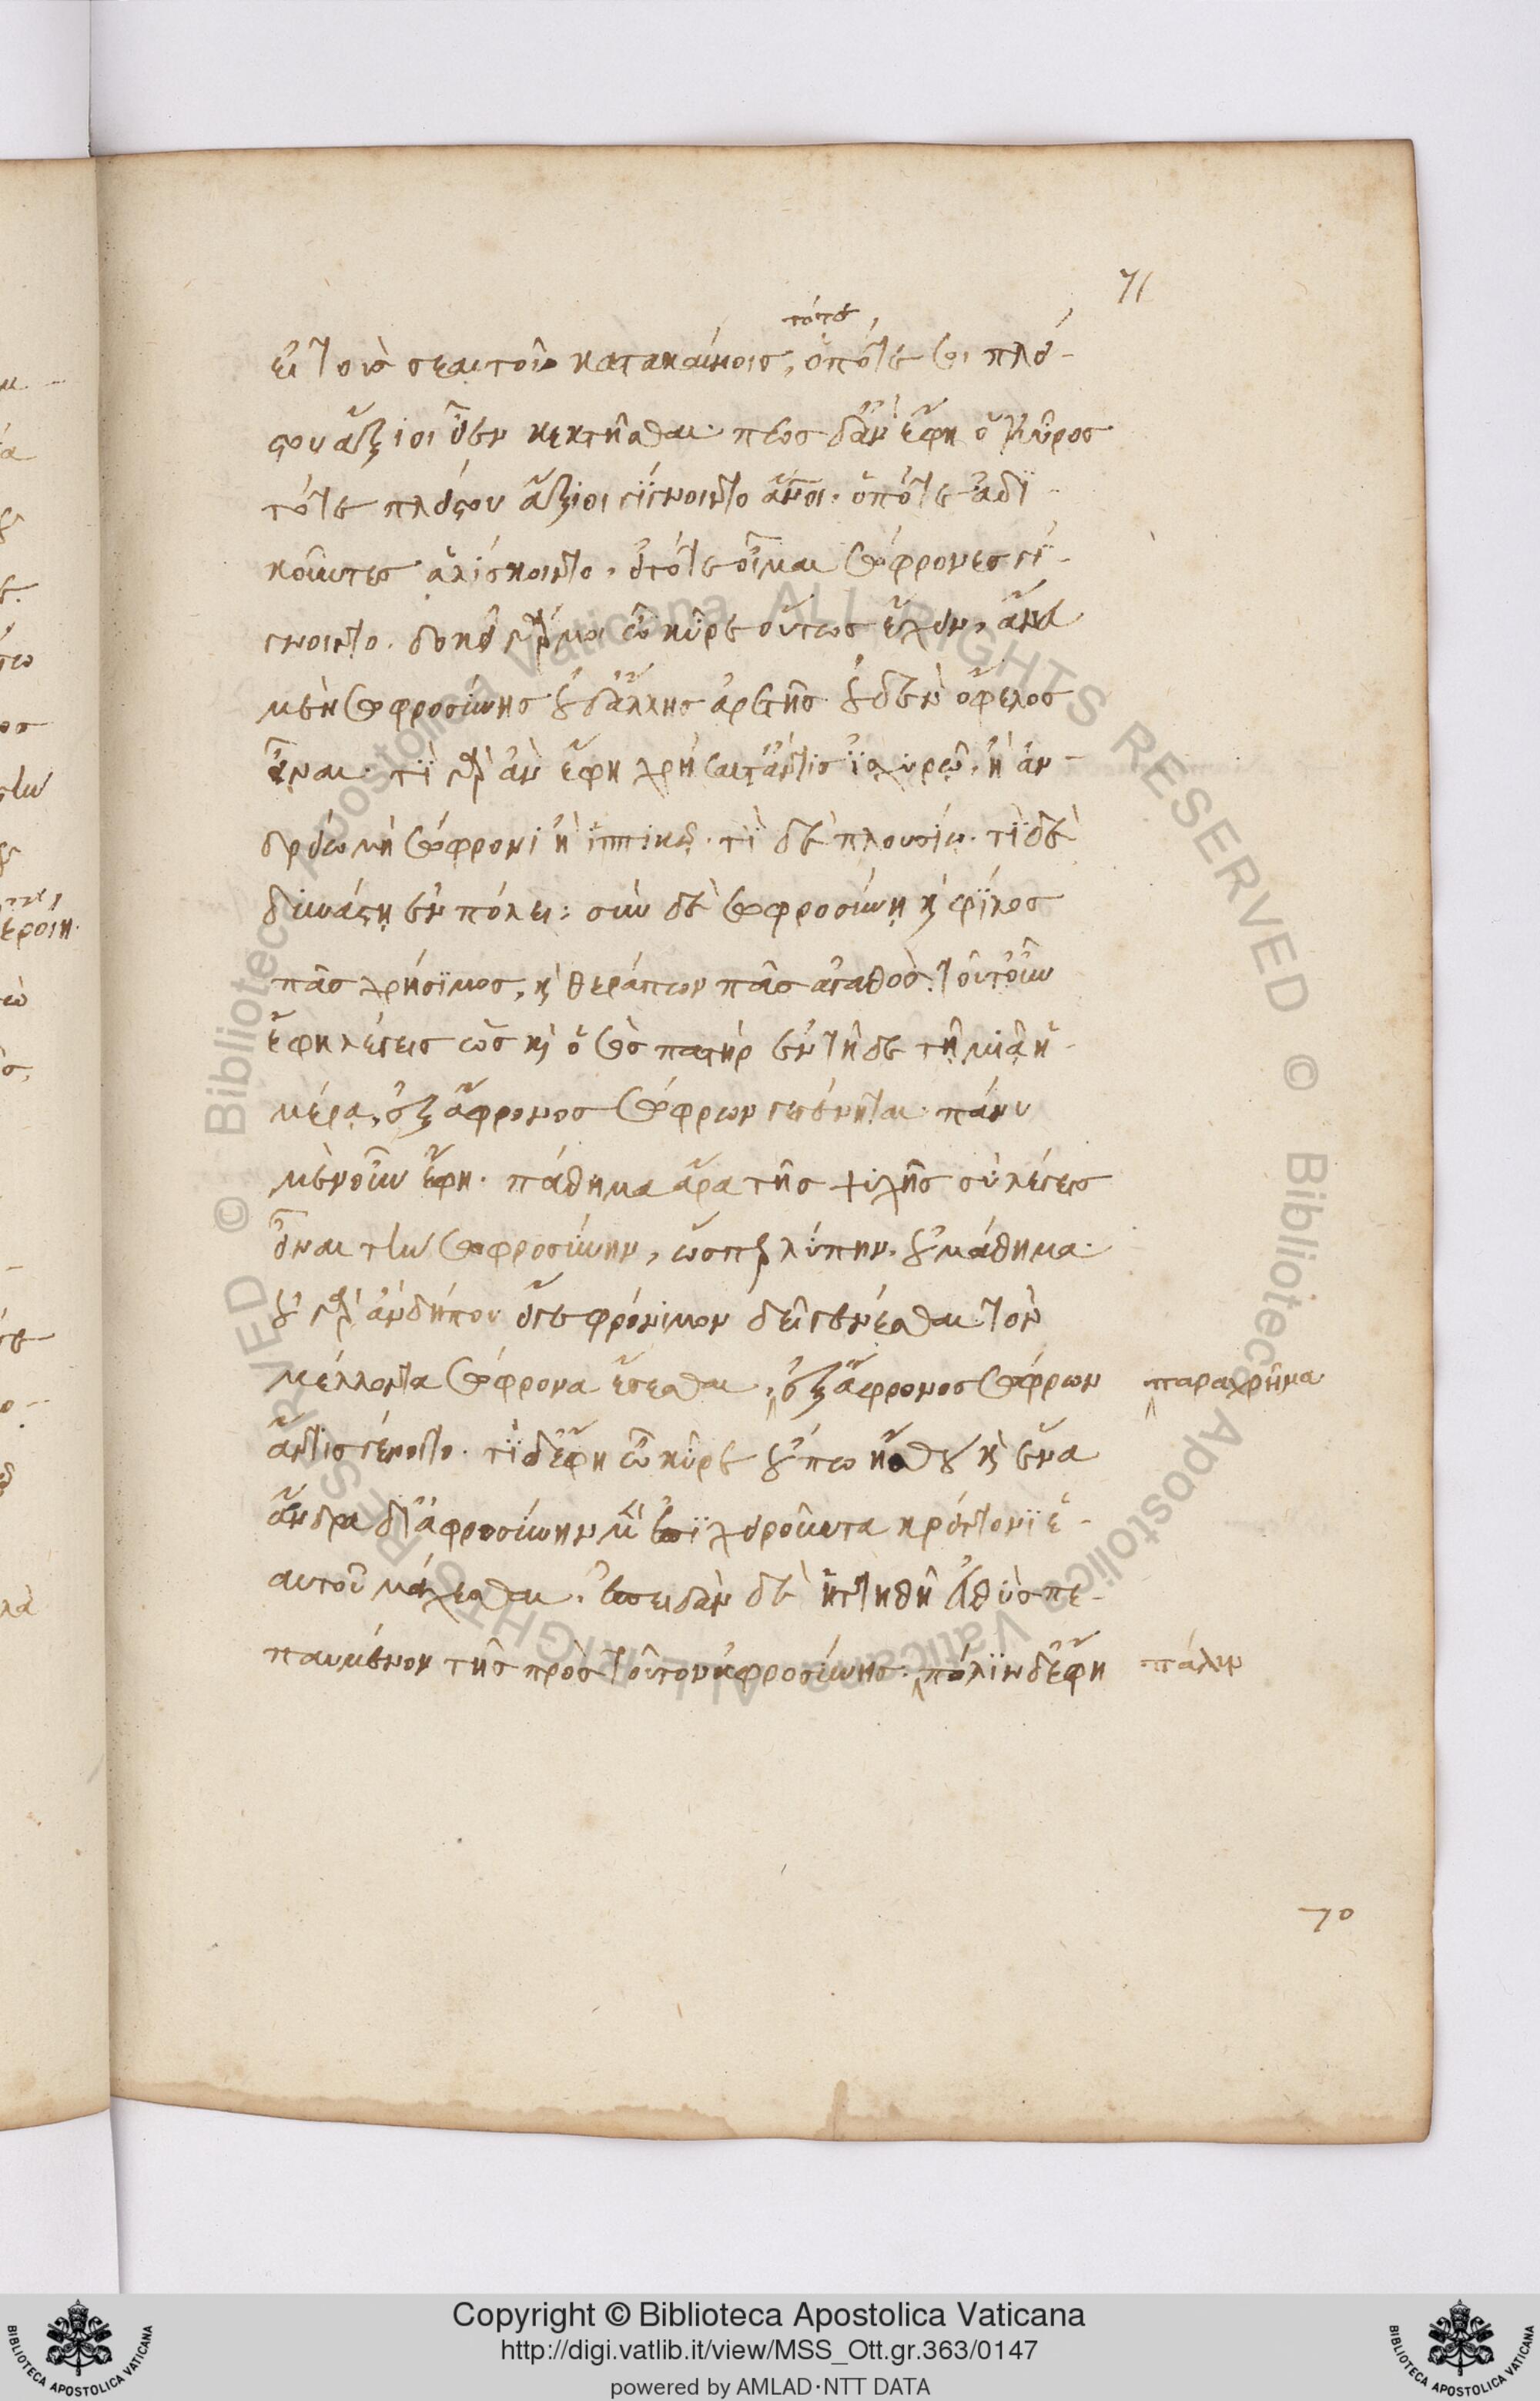 71
τότε
εἰ τοὺς σεαυτοῦ κατακαίνοις, ὁπότε σοι πλεί-
στου ἄξιοι εἶεν κεκτῆσθαι. πῶς δ' ἂν ἔφη ὁ Κῦρος
τότε πλείστου ἄξιοι γίγνοιντο ἄνοι. ὁπότε ἀδι-
κοῦντες ἁλίσκοιντο. εἰ τότε οἶμαι σώφρονες γί-
γνοιντο. δοκεῖ γάρ μοι ὦ κῦρε οὕτως ἔχειν, ἄνευ
μὲν σωφροσύνης οὐδ' ἄλλης ἀρετῆς οὐδὲν ὄφελος
εἶναι. τί γὰρ ἂν ἔφη χρήσαιτ' ἄν τις ἰσχυρῷ, ἢ ἀν-
δρείῳ μὴ σώφρονι ἢ ἱππικῷ. τί δὲ πλουσίῳ. τί δὲ
δυνάστῃ ἐν πόλει: σὺν δὲ σωφροσύνῃ καὶ φίλος
πᾶς χρήσιμος, καὶ θεράπων πᾶς ἀγαθός. τοῦτ' οὖν
ἔφη λέγεις ὡς καὶ ὁ σὸς πατὴρ ἐν τῇδε τῇ μιᾷ ἡ-
μέρᾳ, ἐξ ἄφρονος σώφρων γεγένηται. πάνυ
μὲν οὖν ἔφη. πάθημα ἄρα τῆς ψυχῆς σὺ λέγεις
εἶναι τὴν σωφροσύνην, ὥσπερ λύπην. οὐ μάθημα.
οὐ γὰρ ἂν δήπου εἴγε φρόνιμον δεῖ γενέσθαι τὸν
μέλλοντα σώφρονα ἔσεσθαι, ἐξ ἄφρονος σώφρων
παραχρῆμα
ἄν τις γένοιτο. τί δ' ἔφη ὦ κῦρε οὔπω ᾔσθου καὶ ἕνα
ἄνδρα δι' ἀφροσύνην μὲν ἐπιχειροῦντα κρείττονι ἑ-
αυτοῦ μάχεσθαι. ἐπειδὰν δὲ ἡττηθῇ εὐθὺς πε-
παυμένον τῆς πρὸς τοῦτον ἀφροσύνης. πάλιν δ' ἔφη
πάλιν
70
Copyright © Biblioteca Apostolica Vaticana
http://digi.vatlib.it/view/MSS_Ott.gr.363/0147
powered by AMLAD·NTT DATA